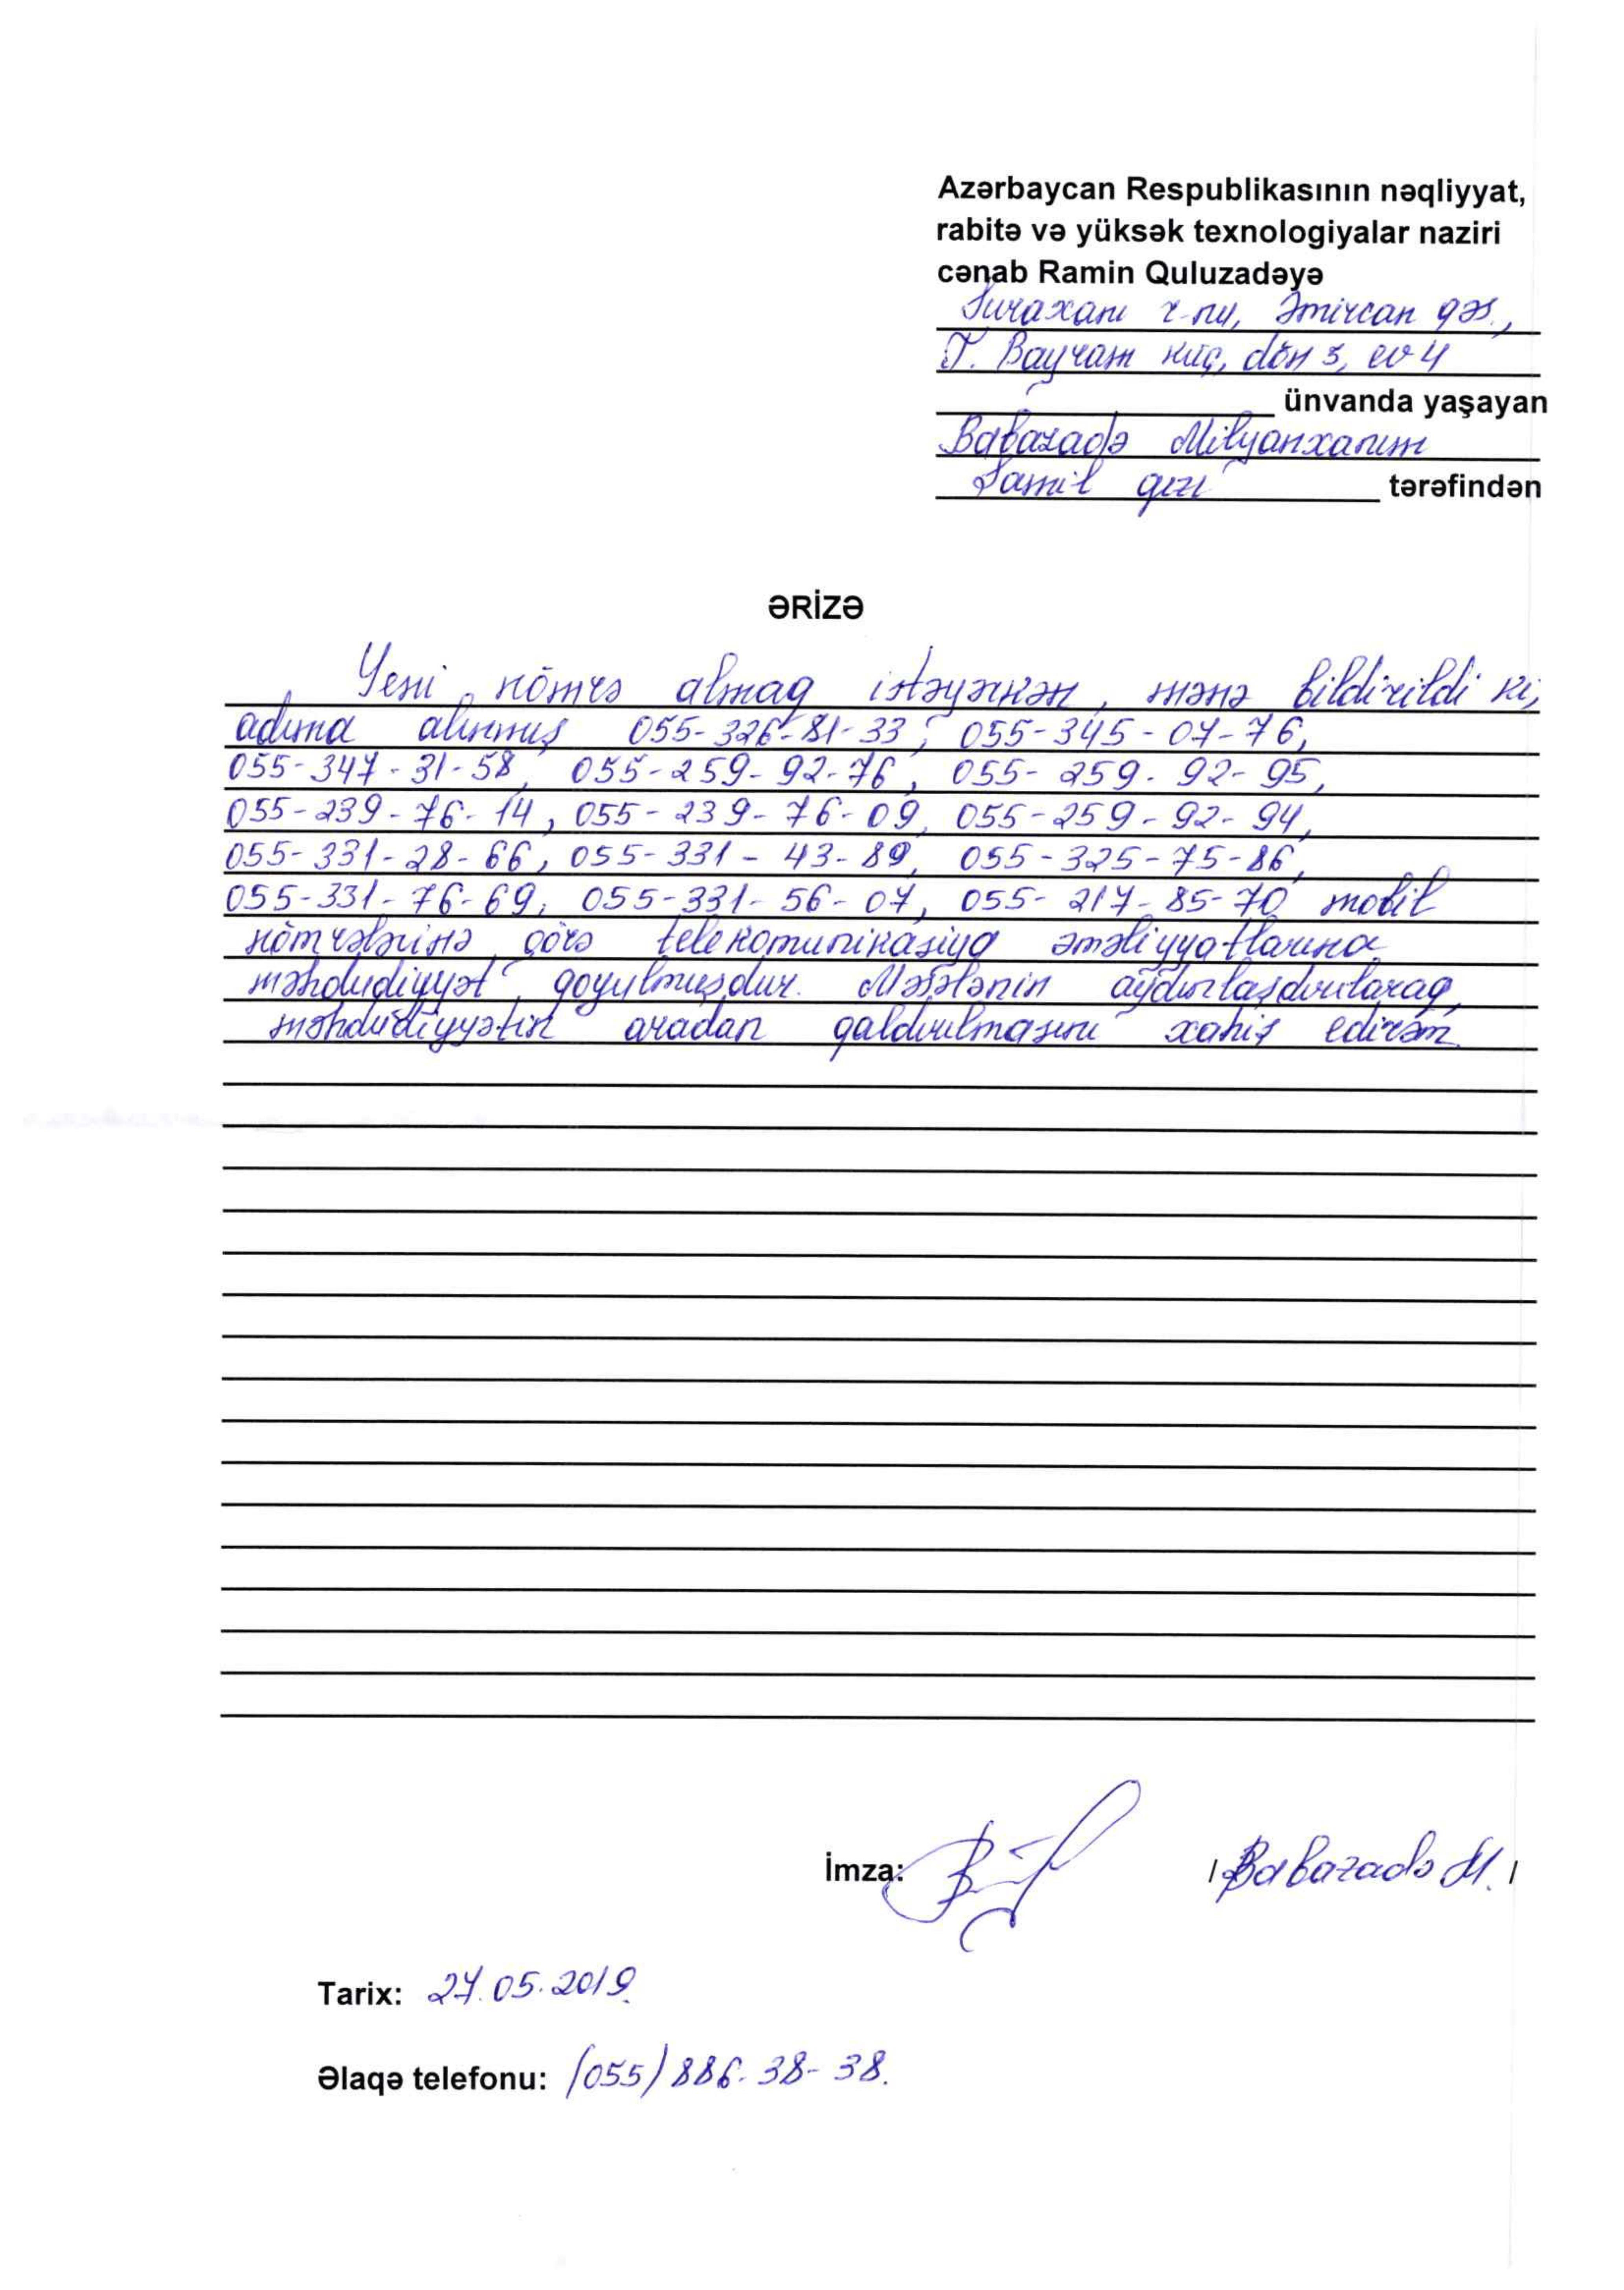 Azərbaycan Respublikasının nəqliyyat,
rabitə və yüksək texnologiyalar naziri
cənab Ramin Quluzadəyə
Suraxanı r-nu, Əmircan qəs.,
T. Bayram küç, dön 3, ev 4
ünvanda yaşayan
Babazadə Milyanxanım
Şamil qızı tərəfindən
ƏRİZƏ
Yeni nömrə almaq istəyərkən, mənə bildirildi ki,
adıma alınmış 055-326-81-33, 055-345-07-76,
055-347-31-58, 055-259-92-76, 055-259-92-95,
055-239-76-14, 055-239-76-09, 055-259-92-94,
055-331-28-66, 055-331-43-89, 055-325-75-86,
055-331-76-69, 055-331-56-07, 055-217-85-70 mobil
nömrələrinə görə telekomunikasiya əməliyyatlarına
məhdudiyyət qoyulmuşdur. Məsələnin aydınlaşdırılaraq,
məhdudiyyətin aradan qaldırılmasını xahiş edirəm.
İmza: / Babazadə M. /
Tarix: 27.05.2019.
Əlaqə telefonu: (055) 886-38-38.